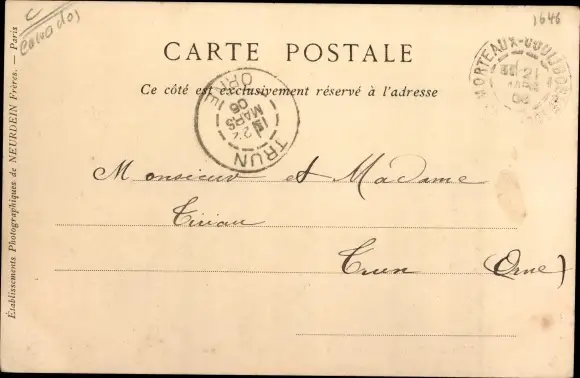 C
Calvados
1646
CARTE POSTALE
Ce côté est exclusivement réservé à l'adresse
MORTEAUX-COULIBOEUF
21
MARS
06
TRUN
MARS
06
ORNE
Monsieur et Madame
Trun (Orne)
Établissements Photographiques de NEURDEIN Frères. — Paris